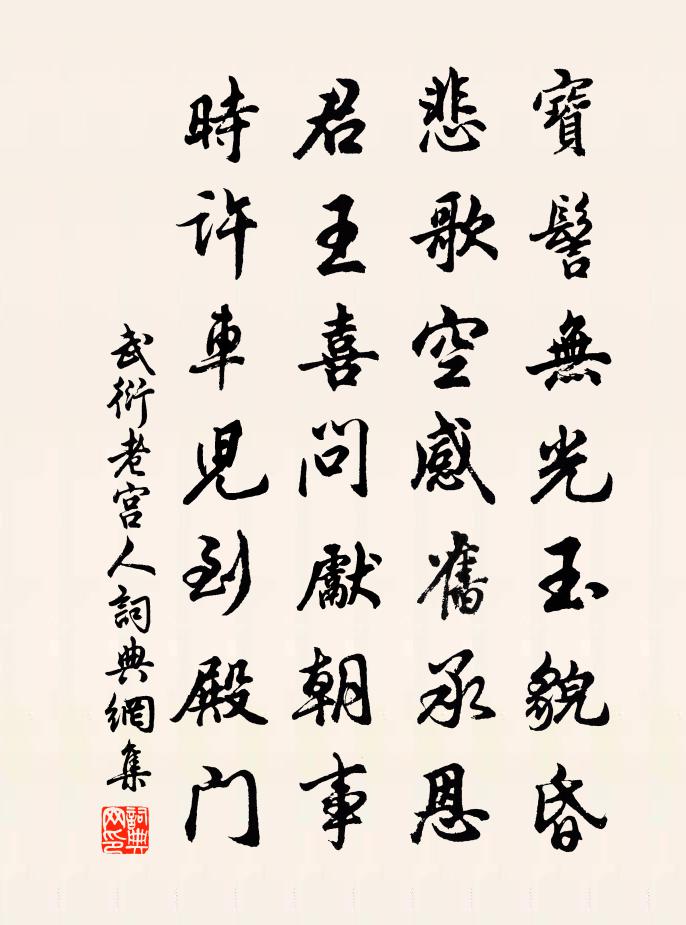 寶髻無光玉貌昏
悲歌空感舊承恩
君王喜問獻朝事
時許車兒到殿門
武衍老宮人詞典網集
詞典網印